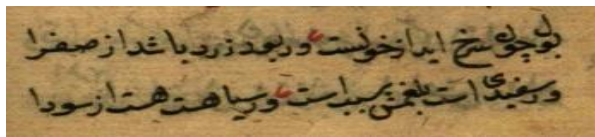 بول چون سرخ اید از خونست ور بود زرد باشد از صفرا
ور سفیدی است بلغمش سبب است ور سیاهست هست از سودا